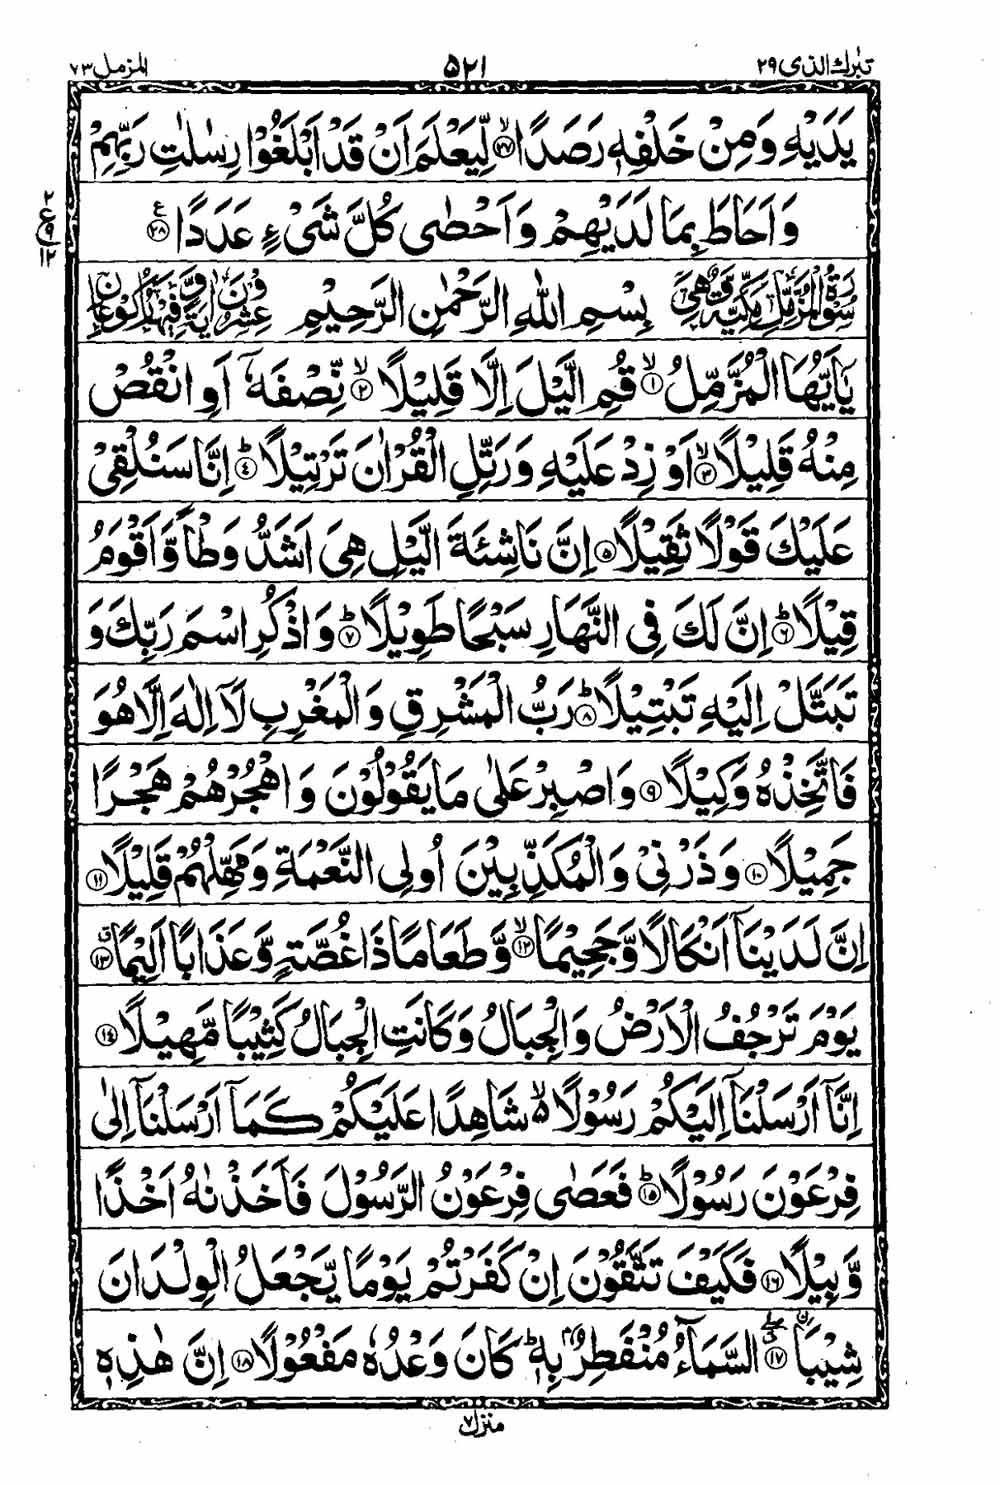 تبٰرك الذی ٢٩ ٥٢١ المزمل ٧٣
يَدَيْهِ وَمِنْ خَلْفِهٖ رَصَدًا ۙ‏﴿۲۷﴾ لِّيَعْلَمَ اَنْ قَدْ اَبْلَغُوْا رِسٰلٰتِ رَبِّهِمْ
وَاَحَاطَ بِمَا لَدَيْهِمْ وَاَحْصٰى كُلَّ شَىْءٍ عَدَدًا ﴿۲۸﴾ ع
٢ ع ٩ ١٢
سُوْرَةُ الْمُزَّمِّلِ مَكِّيَّةٌ وَّهِىَ بِسْمِ اللهِ الرَّحْمٰنِ الرَّحِيْمِ عِشْرُوْنَ اٰيَةً وَّفِيْهَا رُكُوْعَانِ
يٰۤاَيُّهَا الْمُزَّمِّلُ ۙ﴿۱﴾ قُمِ الَّيْلَ اِلَّا قَلِيْلًا ۙ﴿۲﴾ نِّصْفَهٗۤ اَوِ انْقُصْ
مِنْهُ قَلِيْلًا ۙ﴿۳﴾ اَوْ زِدْ عَلَيْهِ وَرَتِّلِ الْقُرْاٰنَ تَرْتِيْلًا ؕ﴿۴﴾ اِنَّا سَنُلْقِىْ
عَلَيْكَ قَوْلًا ثَقِيْلًا ﴿۵﴾ اِنَّ نَاشِئَةَ الَّيْلِ هِىَ اَشَدُّ وَطْاً وَّاَقْوَمُ
قِيْلًا ؕ﴿۶﴾ اِنَّ لَكَ فِى النَّهَارِ سَبْحًا طَوِيْلًا ؕ﴿۷﴾ وَاذْكُرِ اسْمَ رَبِّكَ وَ
تَبَتَّلْ اِلَيْهِ تَبْتِيْلًا ؕ﴿۸﴾ رَبُّ الْمَشْرِقِ وَالْمَغْرِبِ لَاۤ اِلٰهَ اِلَّا هُوَ
فَاتَّخِذْهُ وَكِيْلًا ﴿۹﴾ وَاصْبِرْ عَلٰى مَا يَقُوْلُوْنَ وَاهْجُرْهُمْ هَجْرًا
جَمِيْلًا ﴿۱۰﴾ وَذَرْنِىْ وَالْمُكَذِّبِيْنَ اُولِى النَّعْمَةِ وَمَهِّلْهُمْ قَلِيْلًا ﴿۱۱﴾
اِنَّ لَدَيْنَاۤ اَنْكَالًا وَّجَحِيْمًا ۙ﴿۱۲﴾ وَّطَعَامًا ذَا غُصَّةٍ وَّعَذَابًا اَلِيْمًا ق﴿۱۳﴾
يَوْمَ تَرْجُفُ الْاَرْضُ وَالْجِبَالُ وَكَانَتِ الْجِبَالُ كَثِيْبًا مَّهِيْلًا ﴿۱۴﴾
اِنَّاۤ اَرْسَلْنَاۤ اِلَيْكُمْ رَسُوْلًا ۙ۬ شَاهِدًا عَلَيْكُمْ كَمَاۤ اَرْسَلْنَاۤ اِلٰى
فِرْعَوْنَ رَسُوْلًا ؕ﴿۱۵﴾ فَعَصٰى فِرْعَوْنُ الرَّسُوْلَ فَاَخَذْنٰهُ اَخْذًا
وَّبِيْلًا ﴿۱۶﴾ فَكَيْفَ تَتَّقُوْنَ اِنْ كَفَرْتُمْ يَوْمًا يَّجْعَلُ الْوِلْدَانَ
شِيْبَاۨ ۖ﴿۱۷﴾ السَّمَآءُ مُنْفَطِرٌۢ بِهٖ ؕ كَانَ وَعْدُهٗ مَفْعُوْلًا ﴿۱۸﴾ اِنَّ هٰذِهٖ
منزل ٧